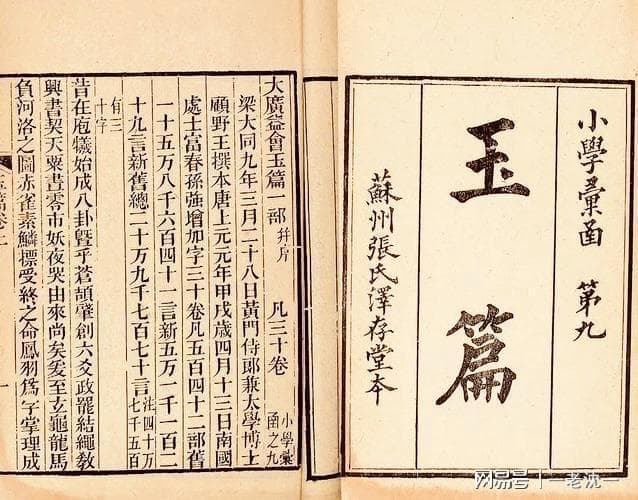 小學彙函 第九
玉篇
蘇州張氏澤存堂本
大廣益會玉篇一部 并序 凡三十卷 小學彙函之九
梁大同九年三月二十八日黃門侍郎兼太學博士
顧野王撰本唐上元元年甲戌歲四月十三日南國
處士富春孫強增加字三十卷凡五百四十二部舊
一十五万八千六百四十一言新五万一千一百二
十九言新舊總二十万九千七百七十言 注四十万七千五百
有三十字
昔在庖犧始成八卦暨乎蒼頡肇創六爻政罷結繩教
興書契天粟晝零市妖夜哭由來尚矣爰至玄龜龍馬
負河洛之圖赤雀素鱗標受終之命鳳羽爲字掌理成
网易号 一老沈一